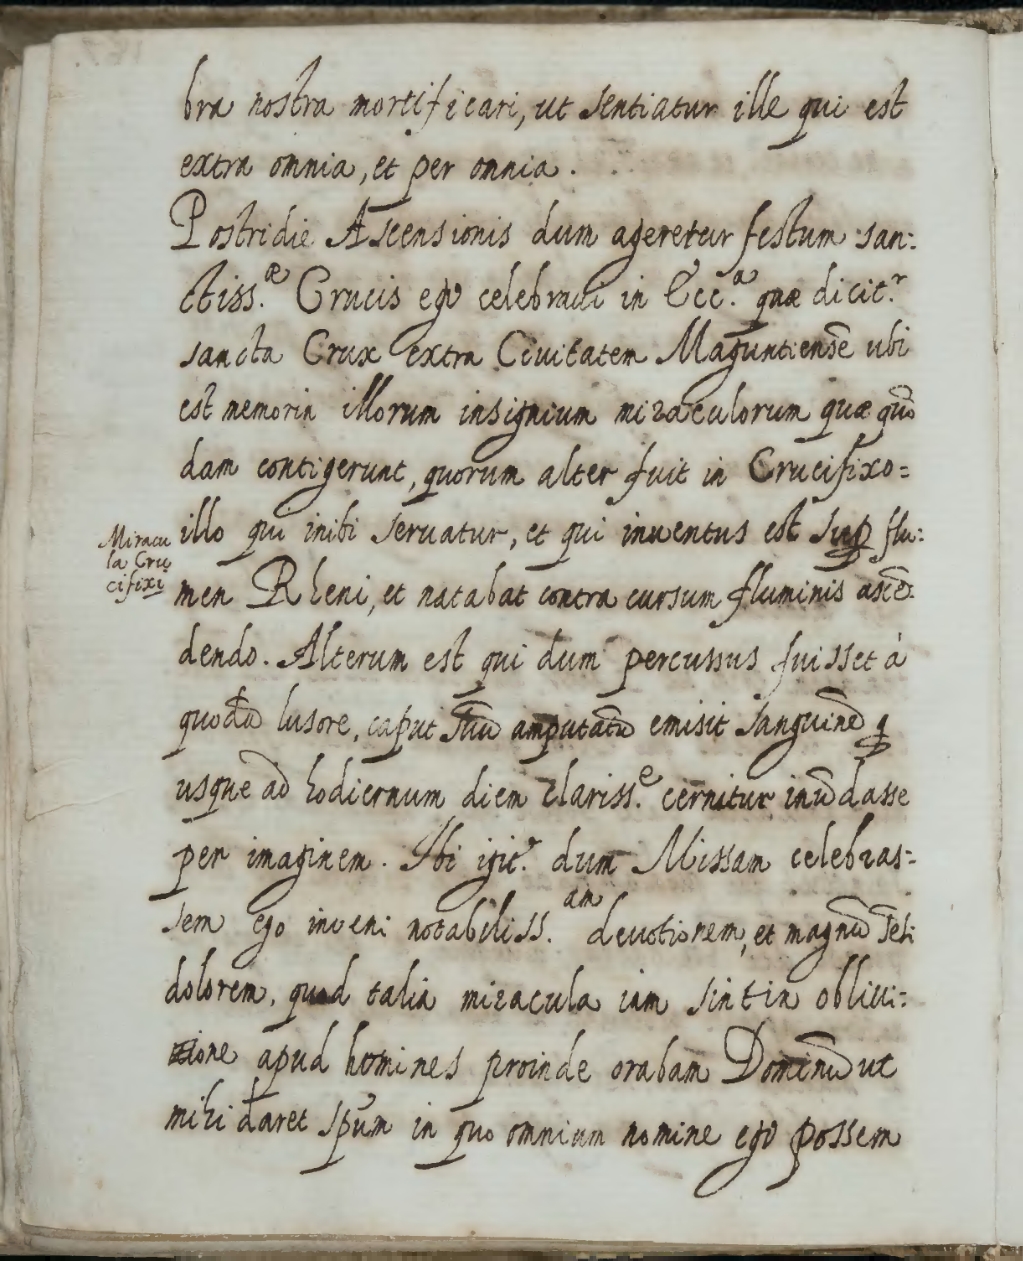 bra nostra mortificari, ut sentiatur ille qui est
extra omnia, et per omnia.
Postridie Ascensionis dum ageretur festum san:
ctiss.æ Crucis ego celebraui in Ecc.a quæ dicit.r
sancta Crux extra Ciuitatem Maguntiensē ubi
est memoria illorum insignium miraculorum quæ quō
dam contigerunt, quorum alter fuit in Crucifixo=
illo qui inibi seruatur, et qui inuentus est sup flu:
Miracu
la Cru
cifixi
men Rheni, et natabat contra cursum fluminis ascē:
dendo. Alterum est qui dum percussus fuisset à
quodā lusore, caput suū amputatū emisit sanguinē q
usque ad hodiernum diem clariss.e cernitur inūdasse
per imaginem. Ibi igit.r dum Missam celebras=
sem ego inueni notabiliss.am deuotionem, et magnū
dolorem, quod talia miracula iam sint in obliui=
one apud homines proinde orabam Dominū ut
mihi daret spūm in quo omnium nomine ego possem